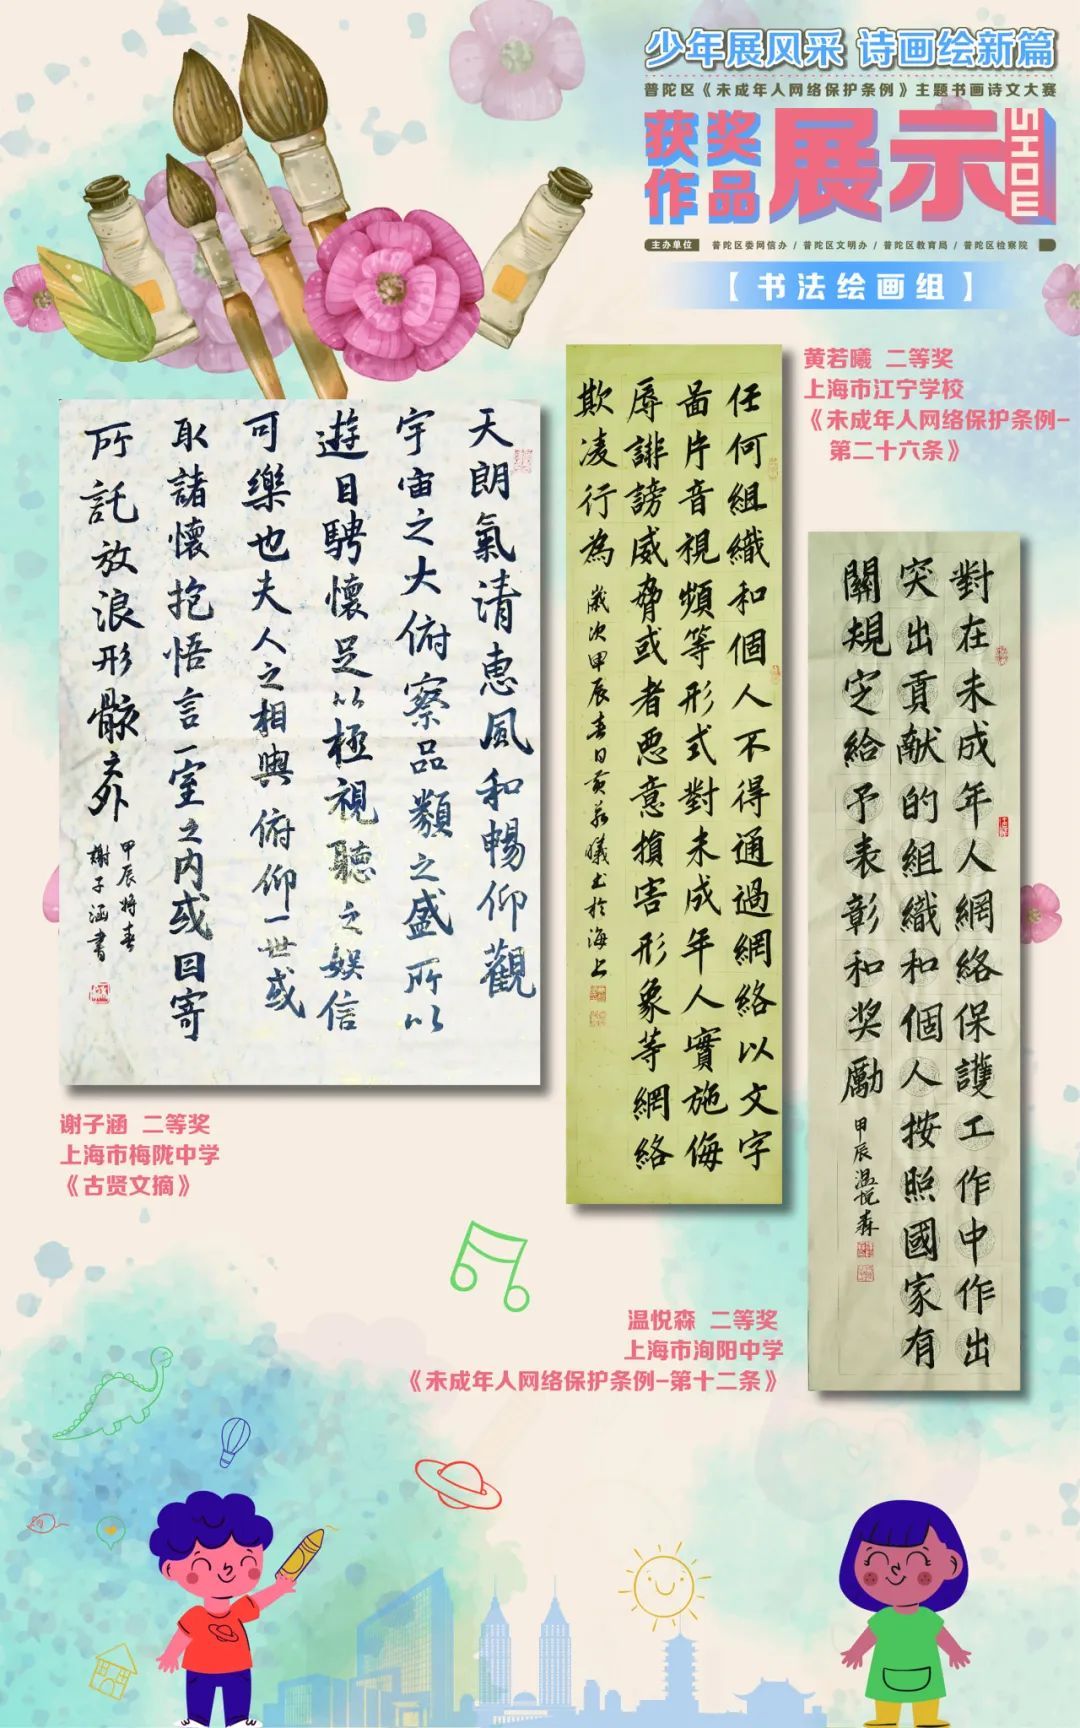 少年展风采 诗画绘新篇
普陀区《未成年人网络保护条例》主题书画诗文大赛
获奖
作品
展示
SHOW
主办单位 普陀区委网信办 / 普陀区文明办 / 普陀区教育局 / 普陀区检察院
【书法绘画组】
黄若曦 二等奖
上海市江宁学校
《未成年人网络保护条例-
第二十六条》
天朗氣清惠風和暢仰觀
宇宙之大俯察品類之盛所以
遊目騁懷足以極視聽之娱信
可樂也夫人之相與俯仰一世或
取諸懷抱悟言一室之内或因寄
所託放浪形骸之外
甲辰将春
謝子涵書
任何組織和個人不得通過網絡以文字
啚片音視頻等形式對未成年人實施侮
辱誹謗威脅或者恶意損害形象等網絡
欺凌行為 歲次甲辰春日黄若曦书於海上
對在未成年人網絡保護工作中作出
突出貢献的組織和個人按照國家有
關規定給予表彰和奖勵
甲辰温悦森
谢子涵 二等奖
上海市梅陇中学
《古贤文摘》
温悦森 二等奖
上海市洵阳中学
《未成年人网络保护条例-第十二条》